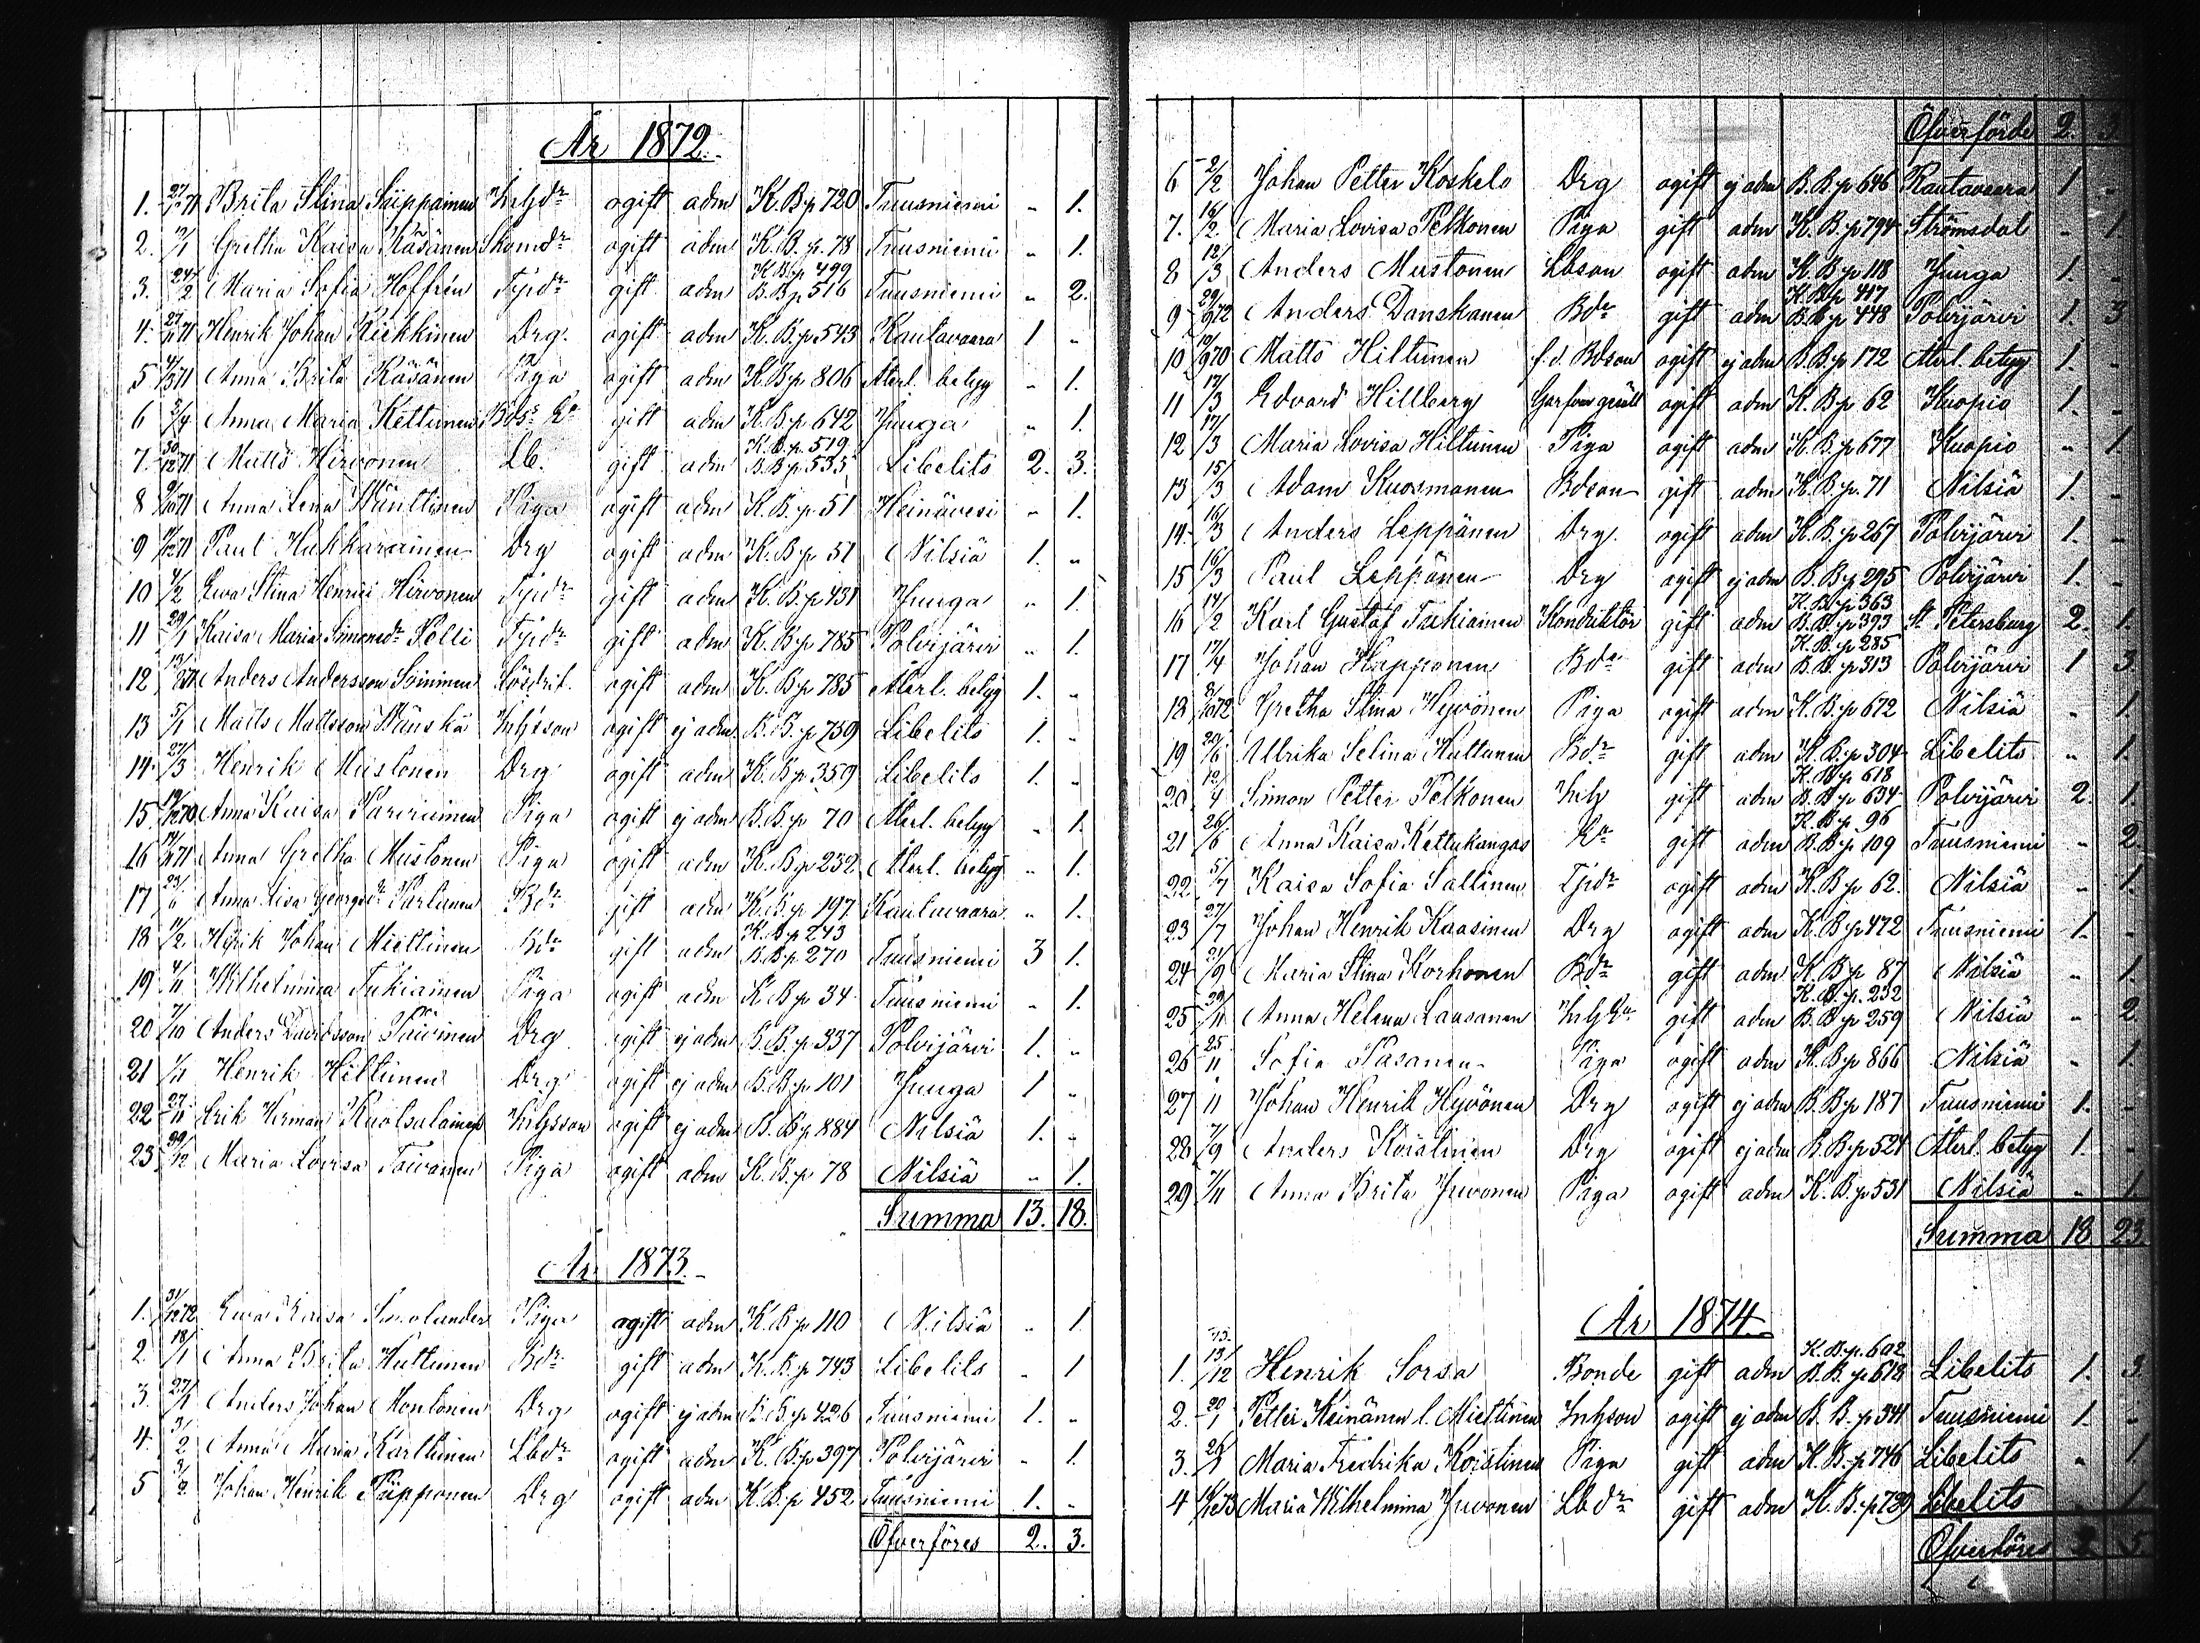 År 1872.
1. 27/1 71 Brita Stina Säppainen Inhjdr ogift adm K.B.p 720 Tuusniemi " 1.
2. Gretha Kaisa Räsänen Skomdr ogift adm K.B.p. 78 Tuusniemi " 1.
K.B.p 499
3. 24/2 Maria Sofia Hoffrén Tjrdr gift adm B.B.p 516 Tuusniemi " 2.
4. Henrik Johan Keihkinen Drg. ogift adm K.B.p. 543 Kautavaara 1 "
5 Anna Brita Räsänen Piga ogift adm K.B.p 806 Återl. betyg " 1.
6 Anna Maria Kettunen gift adm K.B.p 642 Juuga " 1.
K.B.p. 519
7. 30/12 71 Matts Hirvonen Lb. gift adm B.B.p 535 Libelits 2. 3.
8 Anna Lena Mänttinen Piga ogift adm K.B.p. 51 Heinävesi " 1.
9 Paul Hukkarainen Drg ogift adm K.B.p 51 Nilsiä 1. "
10 4/2 Ewa Stina Henrici Hirvonen Tjrdr gift adm K.B.p 431 Juuga " 1.
11 29/1 Kaisa Maria Simonsdr Polli Tjrdr gift adm K.B.p 785 Polvijärvi " 1.
12 Anders Andersson Lösdrif. ogift adm K.B.p 785 Återl. betyg 1. "
13 5/1 Matts Mattsson Inhjson ogift ej adm B.B.p 759 Libelits 1. "
14. 27/3 Henrik Mustonen Drg ogift adm K.B.p 359 Libelits 1. "
15. Anna Kaisa Parviainen Piga ogift ej adm B.B.p 70 Återl. betyg " 1.
16 Anna Gretha Mustonen Piga ogift adm K.B.p 232 Återl. betyg " 1.
17 Anna Lisa Georgsdr Partanen Bdr gift adm K.B.p 197 Kautavaara " 1.
K.B.p 243
18 Henrik Johan Miettinen Bdr gift adm B.B.p. 270 Tuusniemi 3 1.
19 4/11 Wilhelmina Tukiainen Piga ogift adm K.B.p 34 Tuusniemi " 1.
20 7/10 Anders Davidsson Drg ogift ej adm B.B.p 337 Polvijärvi 1. "
21 1/11 Henrik Hiltunen Drg ogift ej adm B.B.p 101 Juuga 1 "
22 27/11 Erik Herman Inhjsson ogift ej adm B.B.p 884 Nilsiä 1. "
23 29/12 Maria Lovisa Toivanen Piga ogift adm K.B.p 78 Nilsiä " 1.
Summa 13. 18.
År 1873.
1. 31/12 72 Ewa Kaisa Smolander Piga ogift adm K.B.p 110 Nilsiä " 1
2. 18/1 Anna Brita Huttunen Bdr gift adm K.B.p 743 Libelits " 1
3. 27/1 Anders Johan Montonen Drg ogift ej adm B.B.p 426 Tuusniemi 1. "
4. 3/2 Anna Maria Karttunen Lbdr ogift adm K.B.p 397 Polvijärvi " 1.
5 3/2 Johan Henrik Pöpponen Drg ogift adm K.B.p 452 Tuusniemi 1. "
Öfverföres 2. 3.
Öfverförde 2. 3.
6 2/2 Johan Petter Koskelo Drg ogift ej adm B.B.p 646 Rautavaara 1 "
7. 16/2 Maria Lovisa Pelkonen Piga gift adm K.B.p 794 Strömsdal " 1
8 12/3 Anders Mustonen Lbson ogift adm K.B.p 118 Juuga 1. "
K.B.p 417
9 29/9 72 Anders Danskanen Bdr gift adm B.B.p 448 Polvijärvi 1. 3
10 Matts Hiltunen f.d. Bdson ogift ej adm B.B.p 172 Återl. betyg 1. "
11 17/3 Edvard Hillberg Garfvaregesäll ogift adm K.B.p 62 Kuopio 1. "
12 17/3 Maria Lovisa Hiltunen Piga ogift adm K.B.p 677 Kuopio " 1.
13 15/3 Adam Kuosmanen Bdson gift adm K.B.p. 71 Nilsiä 1. "
14. 16/3 Anders Leppänen Drg. ogift adm K.B.p 267 Polvijärvi 1. "
15 16/3 Paul Leppänen Drg ogift ej adm B.B.p 295 Polvijärvi 1. "
K.B.p 363
16 14/2 Karl Gustaf Tukiainen Konduktör gift adm B.B.p 393 St Petersburg 2. 1.
K.B.p 285
17 17/4 Johan Happonen Bdr gift adm B.B.p 313 Polvijärvi 1 3
18 Gretha Stina Hyvönen Piga ogift adm K.B.p 672 Nilsiä " 1.
19 20/6 Ullrika Selina Huttunen Bdr gift adm K.B.p 304 Libelits " 1.
K.B.p 618
20 Simon Petter Pelkonen Inhj gift adm B.B.p 634 Polvijärvi 2. 1.
K.B.p 96
21 26/6 Anna Kaisa Kettukangas gift adm B.B.p 109 Tuusniemi " 2.
22 5/7 Kaisa Sofia Sallinen Tjrdr ogift adm K.B.p 62. Nilsiä " 1.
23 27/7 Johan Henrik Kaasinen Drg ogift adm K.B.p 472 Tuusniemi 1. "
24 21/9 Maria Stina Korhonen Bdr gift adm K.B.p 87 Nilsiä " 1.
K.B.p. 232
25 Anna Helena Laasanen gift adm B.B.p 259 Nilsiä " 2
26 25/11 Sofia Pasanen Piga ogift adm K.B.p 866 Nilsiä " 1.
27 Johan Henrik Hyvönen Drg ogift ej adm B.B.p 187 Tuusniemi 1. "
28 7/9 Anders Koistinen Drg ogift ej adm B.B.p 521 Återl. betyg 1. "
29 7/11 Anna Brita Juvonen Piga ogift adm K.B.p 531 Nilsiä " 1
Summa 18 23.
År 1874.
K.B.p. 602
1. 13/12 Henrik Sorsa Bonde gift adm B.B.p 618 Libelits 1. 3
2. 20/1 Petter Keinänen l. Miettinen Inhjson ogift ej adm B.B.p 341 Tuusniemi 1. "
3. Maria Fredrika Koistinen Piga gift adm K.B.p 746 Libelits " 1
4 Maria Wilhelmina Juvonen Lbdr gift adm K.B.p. 729 Libelits " 1
Öfverföres 2 5